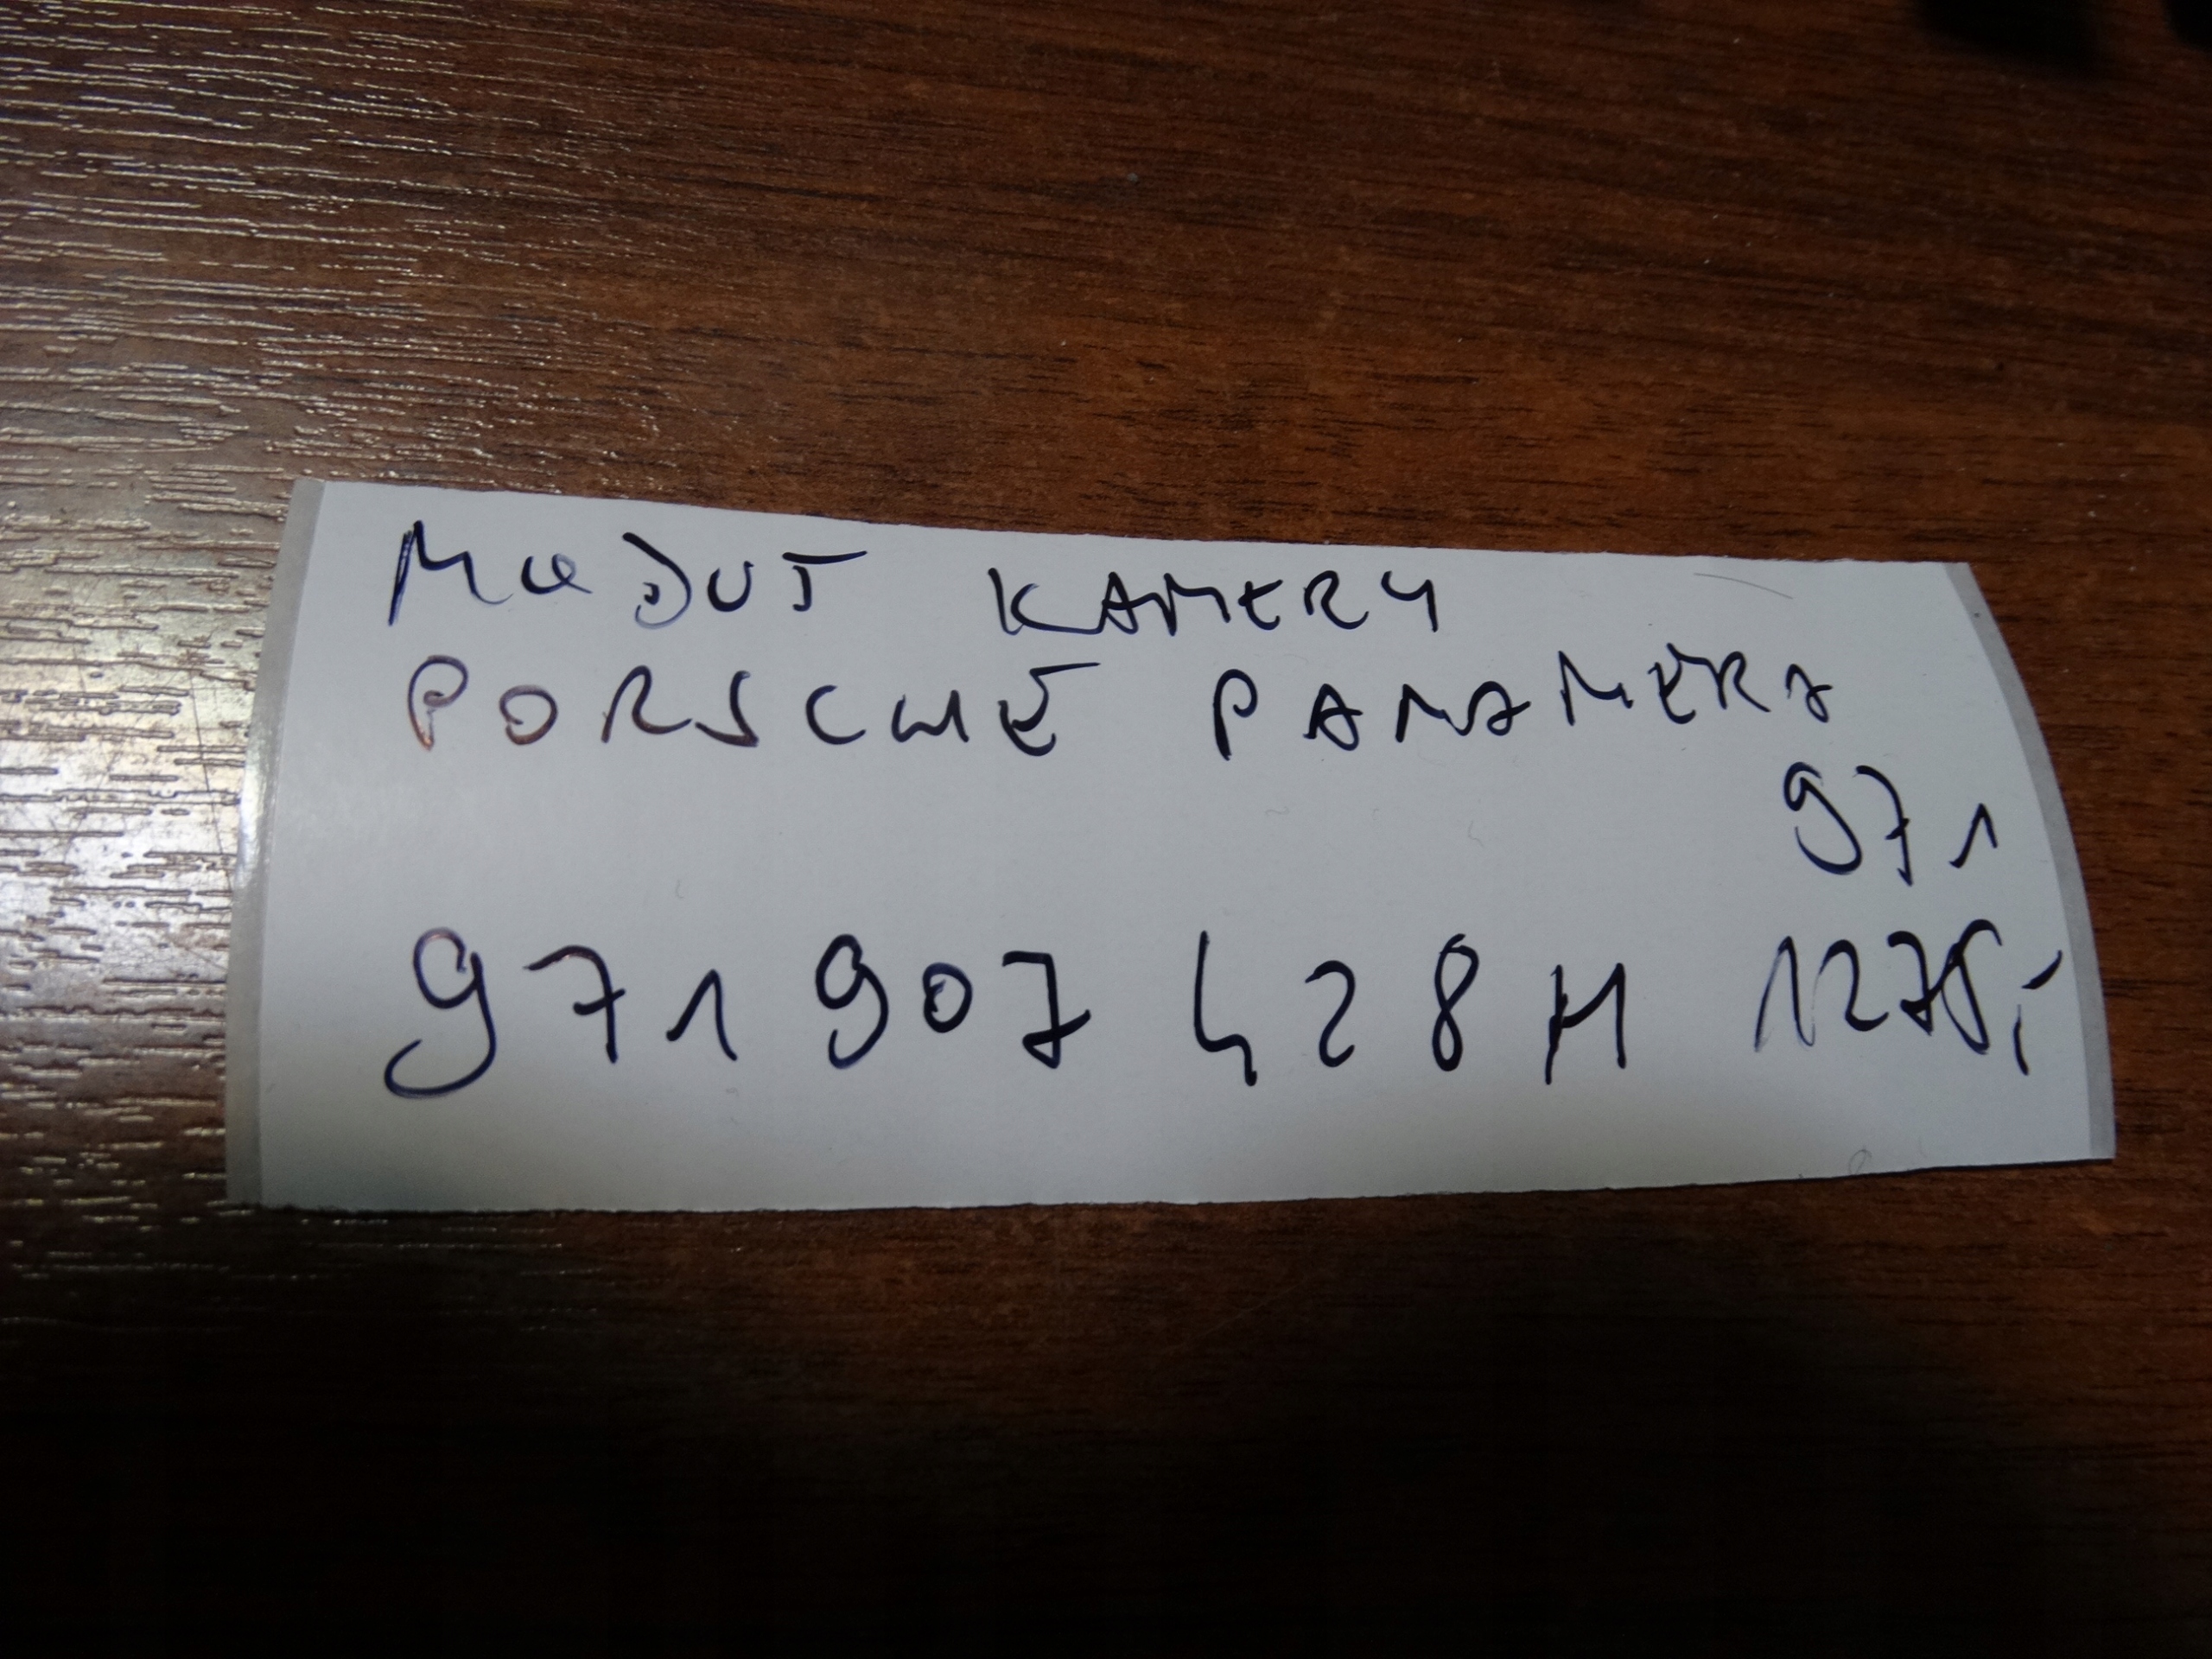 MODUŁ KAMERY
PORSCHE PANAMERA
971
971 907 428 H 1275,-